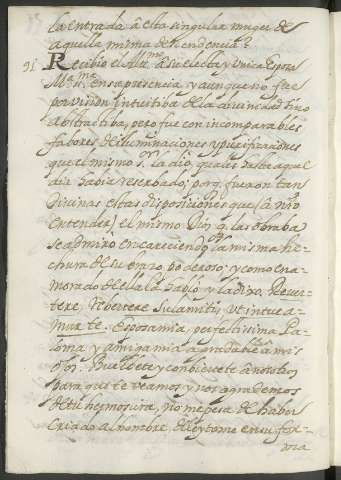 la entrada à esta singular muger de
aquella misma descendencia?
91. Recibio el Alt.mo a su electa y unica esposa
Maria en su presencia, y aunque no fue
por vision intuitiba de la divinidad sino
abstractiba, pero fue con incomparables
fabores de iluminaciones y purificaciones
que el mismo S.r la dio, quales hasta aquel
dia habia reserbado; porq. fueron tan
divinas estas disposiciones que (à nr̃o
entender) el mismo Dios q. las obraba
se admiro encareciendo la misma he-
chura de su brazo poderoso, y como ena-
morado de ella la hablò, y la dixo. Rever-
tere, Rebertere Sulamitis, ut intuea-
mur te. Esposa mia, perfectisima Pa-
loma y amiga mia agradable à mis
ojos. Buelbete y conbiertete à nosotros
para que te veamos y nos agrademos
de tu hermosura, no me pesa de haber
criado al hombre, deleytome en su for-
ma